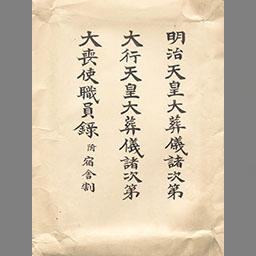 明治天皇大葬儀諸次第
大行天皇大葬儀諸次第
大喪使職員錄 附宿舍割